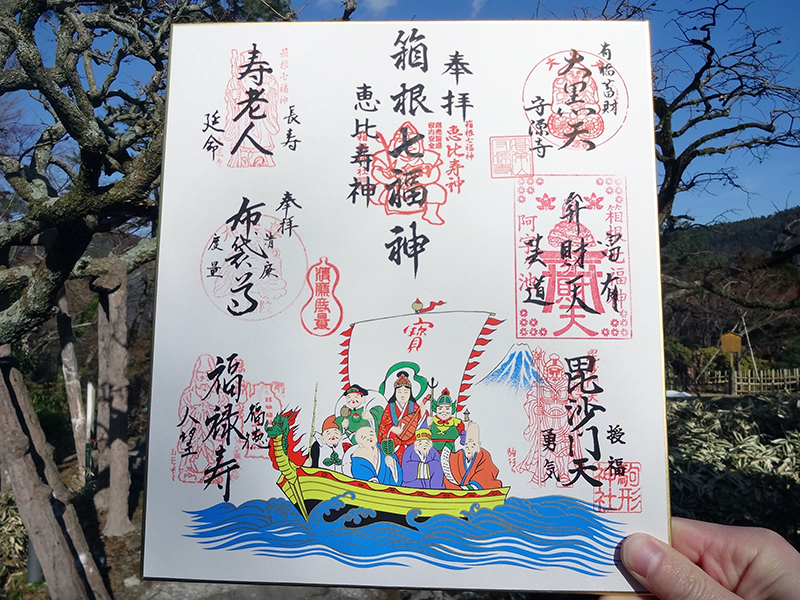 有福蓄財
大黒天
守源寺
奉拝
箱根七福神
恵比寿神
箱根七福神
恵比寿神
箱根七福神
寿老人
長寿
延命
箱根七福神
弁財天
阿字池
奉拝
布袋尊
清廉
度量
清廉度量
授福
毘沙門天
勇気
駒形
神社
福禄寿
福徳
人望
寶